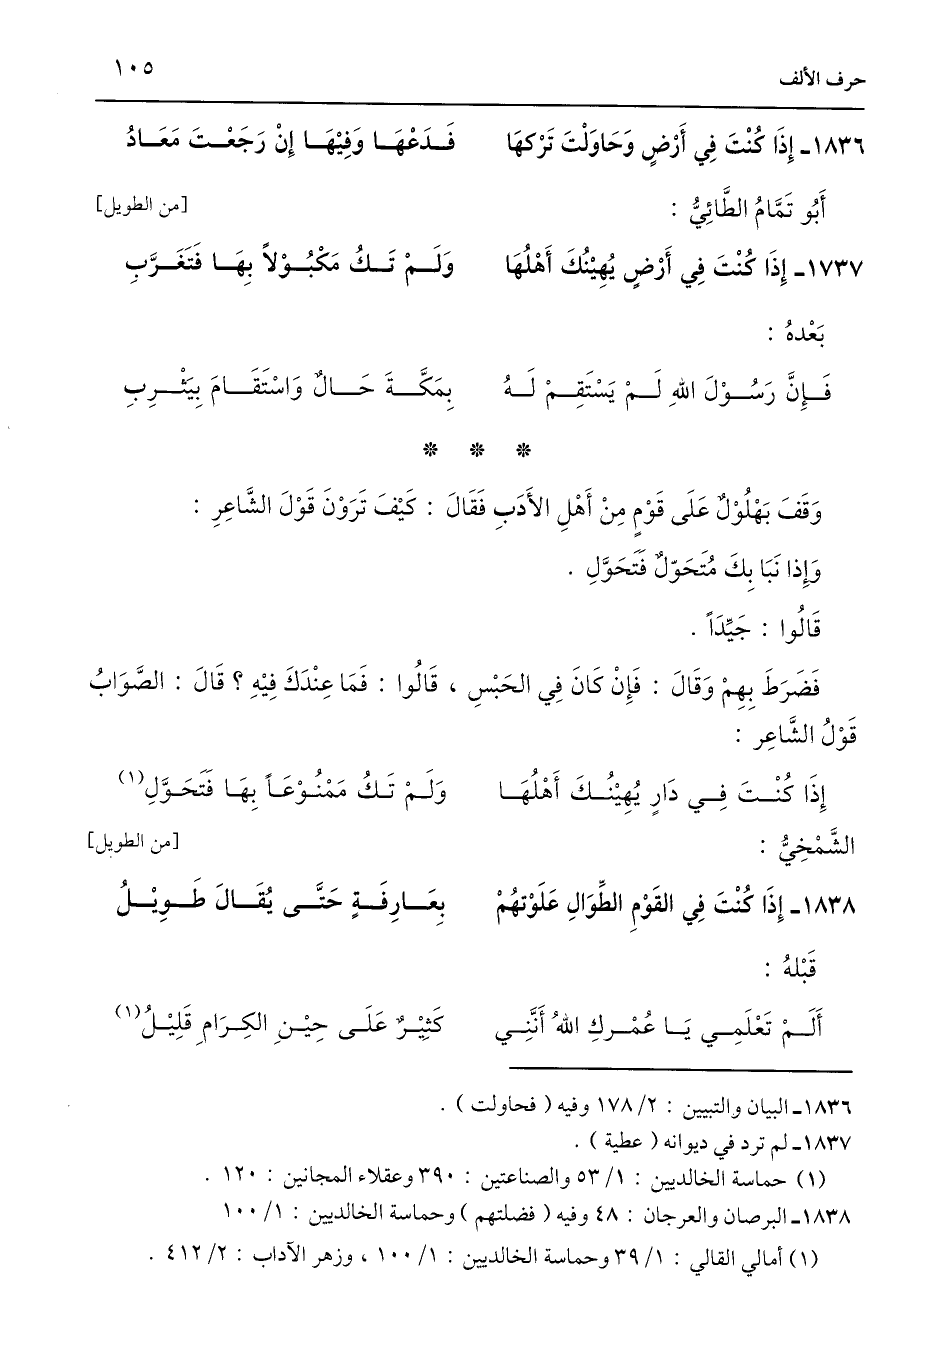 حرف الألف ١٠٥
١٨٣٦ـ إِذَا كُنْتَ فِي أَرْضٍ وَحَاوَلْتَ تَرْكهَا فَـدَعْهَـا وَفِيْهَـا إِنْ رَجَعْـتَ مَعَـادُ
أَبُو تَمَّامُ الطَّائِيُّ : [من الطويل]
١٧٣٧ـ إِذَا كُنْتَ فِي أَرْضٍ يُهِيْنُكَ أَهْلُهَا وَلَـمْ تَـكُ مَكْبُـوْلاً بِهَـا فَتَغَرَّبِ
بَعْدهُ :
فَـإِنَّ رَسُـوْلَ اللهِ لَـمْ يَسْتَقِـمْ لَـهُ بِمَكَّـةَ حَـالٌ وَاسْتَقَـامَ بِيَثْـرِبِ
* * *
وَقَفَ بَهْلُوْلٌ عَلَى قَوْمٍ مِنْ أَهْلِ الأَدَبِ فَقَالَ : كَيْفَ تَرَوْنَ قَوْلَ الشَّاعِرِ :
وَإِذا نَبَا بِكَ مُتَحَوّلٌ فَتَحَوَّلِ .
قَالُوا : جَيِّدَاً .
فَضَرَطَ بِهِمْ وَقَالَ : فَإِنْ كَانَ فِي الحَبْسِ ، قَالُوا : فَمَا عِنْدَكَ فِيْهِ ؟ قَالَ : الصَّوَابُ
قَوْلُ الشَّاعِر :
إِذَا كُنْـتَ فِـي دَارٍ يُهِيْنُـكَ أَهْلُهَـا وَلَـمْ تَـكُ مَمْنُـوْعَـاً بِهَـا فَتَحَـوَّلِ(١)
الشَّمْخِيُّ : [من الطويل]
١٨٣٨ـ إِذَا كُنْتَ فِي القَوْمِ الطِّوَالِ عَلَوْتهُمْ بِعَـارِفَـةٍ حَتَّـى يُقَـالَ طَـوِيْـلُ
قَبْلهُ :
أَلَـمْ تَعْلَمِـي يَـا عُمْـركِ اللهُ أَنَّنِـي كَثِيْـرٌ عَلَـى حِيْـنِ الكِـرَامِ قَلِيْـلُ(١)
١٨٣٦ـ البيان والتبيين : ٢/ ١٧٨ وفيه ( فحاولت ) .
١٨٣٧ـ لم ترد في ديوانه ( عطية ) .
(١) حماسة الخالديين : ١/ ٥٣ والصناعتين : ٣٩٠ وعقلاء المجانين : ١٢٠ .
١٨٣٨ـ البرصان والعرجان : ٤٨ وفيه ( فضلتهم ) وحماسة الخالديين : ١/ ١٠٠
(١) أمالي القالي : ١/ ٣٩ وحماسة الخالديين : ١/ ١٠٠ ، وزهر الآداب : ٢/ ٤١٢ .